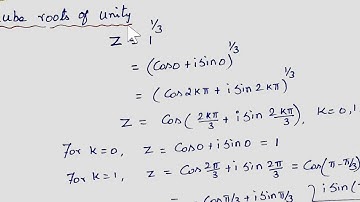 ube roots of unity
Z = 1^(1/3)
= (Cos0 + i sin0)^(1/3)
= (Cos 2kπ + i sin 2kπ)^(1/3)
Z = Cos(2kπ/3 + i sin 2kπ/3), k = 0, 1
For k = 0, z = Cos0 + i sin0 = 1
For k = 1, z = Cos 2π/3 + i sin 2π/3 = Cos(π - π/3)
= -cos π/3 + i sin π/3 i sin(